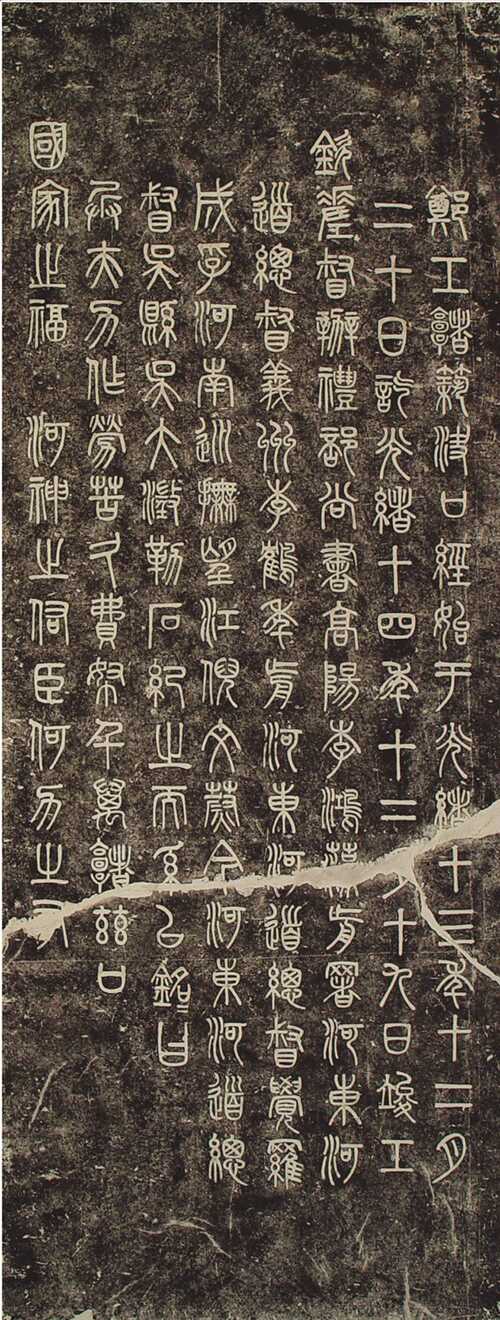 鄭工堵築決口經始于光緒十三年十二月
二十日訖光緒十四年十二月十九日竣工
欽差督辦禮部尚書高陽李鴻藻前署河東河
道總督義州李鶴年前河東河道總督覺羅
成孚河南巡撫望江倪文蔚今河東河道總
督吳縣吳大澂勒石紀之而系以銘曰
兵夫力作勞苦久費帑千萬堵茲口
國家之福河神之佑臣何力之有